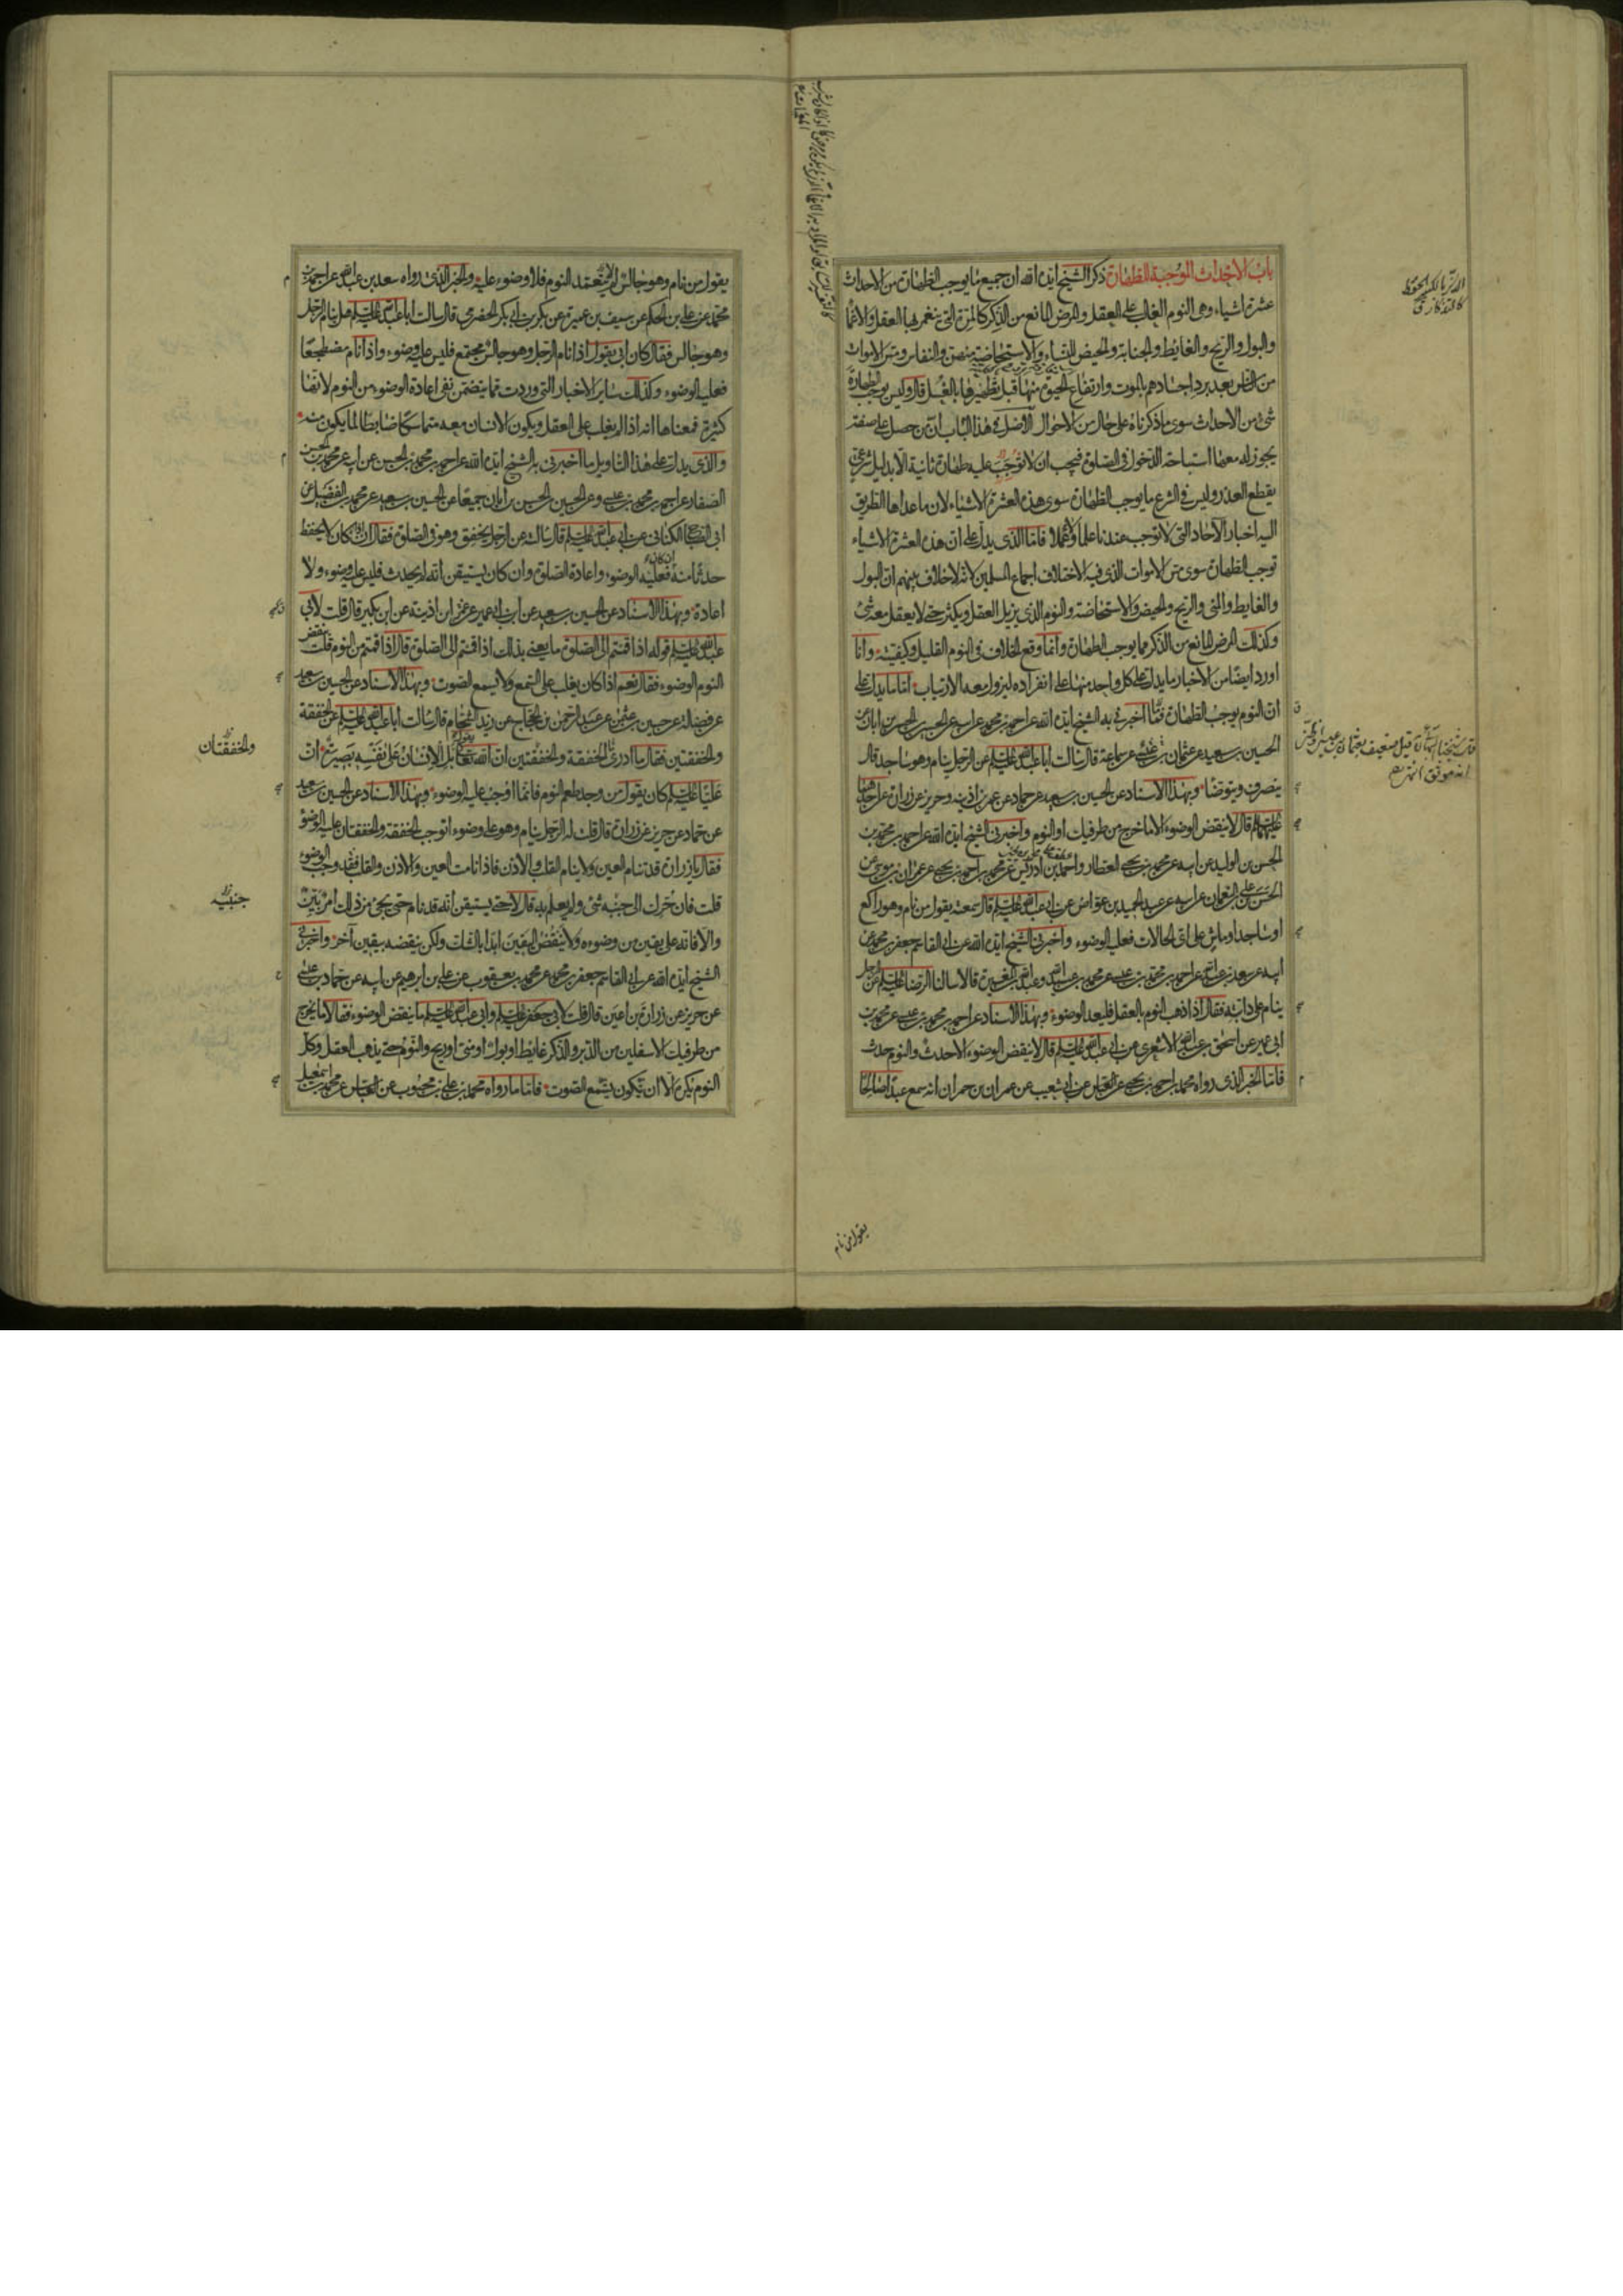 باب الاحداث الموجبة للطهارة ذكر الشيخ ايده الله ان جميع ما يوجب الطهارة من الاحداث
عشرة اشياء وهى النوم الغالب على العقل والمرض المانع من الذكر كالمرة التى ينغمر بها العقل والاغما
والبول والريح والغايط والجنابة والحيض للنساء والاستحاضة منهن والنفاس ومس الاموات
من الناس بعد برد اجسادهم بالموت وارتفاع الحيوة منها قبل تطهيرها بالغسل قال وليس يوجب الطهارة
شئ من الاحداث سوى ما ذكرناه على حال من الاحوال الاصل فى هذا الباب ان من حصل على صفة
يجوز له معها استباحة الدخول فى الصلوة فيجب ان لا توجب عليه طهارة ثانية الا بدليل شرعى
يقطع العذر وليس فى الشرع ما يوجب الطهارة سوى هذه العشرة الاشياء لان ما عداها الطريق
اليه اخبار الآحاد التى لا توجب عندنا علما ولا عملا فاما الذى يدل على ان هذه العشرة الاشياء
توجب الطهارة سوى مس الاموات الذى فيه الاختلاف اجماع المسلمين لانه لا خلاف بينهم ان البول
والغايط والمنى والريح والحيض والاستحاضة والنوم الذى يزيل العقل ويكثر حتى لا يعقل معه شئ
وكذلك المرض المانع من الذكر مما يوجب الطهارة وانما وقع الخلاف فى النوم القليل وكيفيته وانا
اورد ايضا من الاخبار ما يدل على كل واحد منها على انفراده ليزول معه الارتياب اما ما يدل على
ان النوم يوجب الطهارة فما اخبرنى به الشيخ ايده الله عن احمد بن محمد عن ابيه عن الحسين بن الحسن بن ابان عن
الحسين بن سعيد عن عثمان بن عيسى عن سماعة قال سالت ابا عبد الله عليه السلام عن الرجل ينام وهو ساجد قال
ينصرف ويتوضا وبهذا الاسناد عن الحسين بن سعيد عن حماد عن عمر بن اذينه وحريز عن زرارة عن احدهما
عليهما السلام قال لا ينقض الوضوء الا ما خرج من طرفيك او النوم واخبرنى الشيخ ايده الله عن احمد بن محمد بن
الحسن بن الوليد عن ابيه عن محمد بن يحيى العطار واحمد بن ادريس عن محمد بن احمد بن يحيى عن عمران بن موسى عن
الحسن بن على بن النعمان عن ابيه عن عبد الحميد بن عواض عن ابى عبد الله عليه السلام قال سمعته يقول من نام وهو راكع
او ساجد او ماش على اى الحالات فعليه الوضوء واخبرنى الشيخ ايده الله عن ابى القاسم جعفر بن محمد عن
ابيه عن سعد بن عبد الله عن احمد بن محمد بن عيسى عن محمد بن عبيد الله وعبد الله بن المغيرة قالا سالنا الرضا عليه السلام عن الرجل
ينام على دابته فقال اذا ذهب النوم بالعقل فليعد الوضوء وبهذا الاسناد عن احمد بن محمد بن عيسى عن محمد بن
ابى عمير عن اسحق بن عبد الله الاشعرى عن ابى عبد الله عليه السلام قال لا ينقض الوضوء الا حدث والنوم حدث
فاما الخبر الذى رواه محمد بن احمد بن يحيى عن العباس عن ابى شعيب عن عمران بن حمران انه سمع عبدا صالحا
يقول من نام
يقول من نام وهو جالس لا يتعمد النوم فلا وضوء عليه والخبر الذى رواه سعد بن عبد الله عن احمد بن
محمد عن على بن الحكم عن سيف بن عميرة عن بكر بن ابى بكر الحضرمى قال سالت ابا عبد الله عليه السلام هل ينام الرجل
وهو جالس فقال كان ابى يقول اذا نام الرجل وهو جالس مجتمع فليس عليه وضوء واذا نام مضطجعا
فعليه الوضوء وكذلك ساير الاخبار التى وردت مما يتضمن نفى اعادة الوضوء من النوم لانها
كثيرة فمعناها انه اذا لم يغلب على العقل ويكون الانسان معه متماسكا ضابطا لما يكون منه
والذى يدل على هذا التاويل ما اخبرنى به الشيخ ايده الله عن احمد بن محمد بن الحسن عن ابيه عن محمد بن الحسن
الصفار عن احمد بن محمد بن عيسى وعن الحسين بن الحسن بن ابان جميعا عن الحسين بن سعيد عن محمد بن الفضيل عن
ابى الصباح الكنانى عن ابى عبد الله عليه السلام قال سالته عن الرجل يخفق وهو فى الصلوة فقال ان كان لا يحفظ
حدثا منه فعليه الوضوء واعادة الصلوة وان كان يستيقن انه لم يحدث فليس عليه وضوء ولا
اعادة وبهذا الاسناد عن الحسين بن سعيد عن ابن ابى عمير عن عمر ابن اذينه عن ابن بكير قال قلت لابى
عبد الله عليه السلام قوله اذا قمتم الى الصلوة ما يعنى بذلك اذا قمتم الى الصلوة قال اذا قمتم من النوم قلت ينقض
النوم الوضوء فقال نعم اذا كان يغلب على السمع ولا يسمع الصوت وبهذا الاسناد عن الحسين بن سعيد
عن فضالة عن حسين بن عثمن عن عبد الرحمن بن الحجاج عن زيد الشحام قال سالت ابا عبد الله عليه السلام عن الخفقة
والخفقتين فقال ما ادرى ما الخفقة والخفقتين ان الله تعالى يقول بل الانسان على نفسه بصيرة ان
عليا عليه السلام كان يقول من وجد طعم النوم فانما اوجب عليه الوضوء وبهذا الاسناد عن الحسين بن سعيد
عن حماد عن حريز عن زرارة قال قلت له الرجل ينام وهو على وضوء اتوجب الخفقة والخفقتان عليه الوضوء
والخفقتان
فقال يا زرارة قد تنام العين ولا ينام القلب والاذن فاذا نامت العين والاذن والقلب فقد وجب الوضوء
قلت فان حرك الى جنبه شئ ولم يعلم به قال لا حتى يستيقن انه قد نام حتى يجئ من ذلك امر بين
جنبيه
والا فانه على يقين من وضوءه ولا ينقض اليقين ابدا بالشك ولكن ينقضه بيقين آخر واخبرنى
الشيخ ايده الله عن ابى القاسم جعفر بن محمد عن محمد بن يعقوب عن على بن ابرهيم عن ابيه عن حماد بن عيسى
عن حريز عن زرارة بن اعين قال قلت لابى جعفر عليه السلام وابى عبد الله عليه السلام ما ينقض الوضوء فقالا ما يخرج
من طرفيك الاسفلين من الدبر والذكر غايط او بول او منى او ريح والنوم حتى يذهب العقل وكل
النوم يكره الا ان تكون تسمع الصوت فاما ما رواه محمد بن على بن محبوب عن العباس عن محمد بن اسمعيل